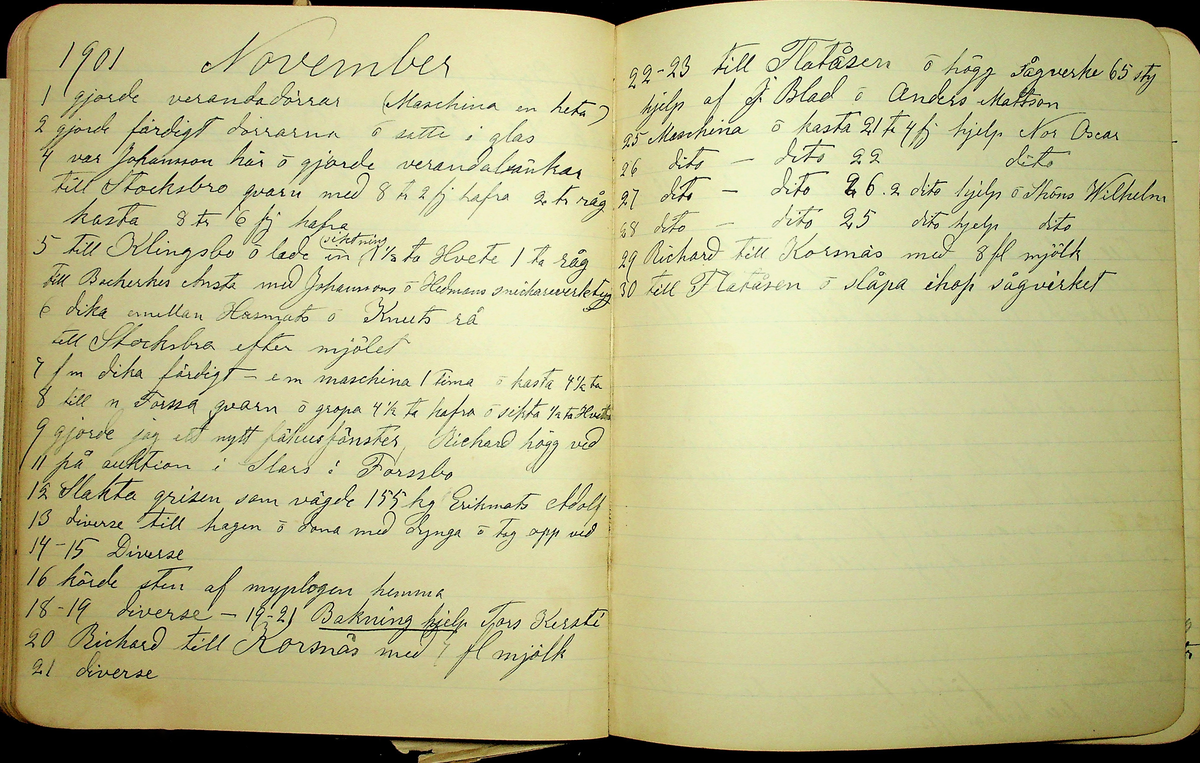 1901 November
1 gjorde verandadörrar (Maschina en heta)
2 gjorde färdigt dörrarna ō satte i glas
4 var Johansson här ō gjorde verandabänkar
till Stocksbro qvarn med 8 tr 2 fj hafra 2 tr råg
kasta 8 tr 6 fj hafra
5 till Klingsbo ō lade in siktning 1½ ta Hvete 1 ta råg
till med Johanssons ō Hedmans snickareverktyg
6 dika emellan Hasmats ō Knuts rå
till Stocksbro efter mjölet
7 fm dika färdigt – em maschina 1 tima ō kasta 4½ ta
8 till n Forssa qvarn ō gropa 4½ ta hafra ō sikta ½ ta Hvete
9 gjorde jag ett nytt fähusfönster, Richard högg ved
11 på auktion i Mars i Forssbo
12 slakta grisen som vägde 155 kg Erikmats Adolf
13 diverse till hagen ō med Lynga ō tog opp ved
14-15 Diverse
16 körde sten af myplogen hemma
18-19 diverse – 19-21 Bakning hjelp Tors Kersti
20 Richard till Korsnäs med 7 fl mjölk
21 diverse
22-23 till Flatåsen ō högg sågverke 65 stj
hjelp af J. Blad ō Anders Mattson
25 Maschina ō kasta 21 tr 4 fj hjelp Nor Oscar
26 dito – dito 22 dito
27 dito – dito 26.2 dito hjelp ō Wilhelm
28 dito – dito 25 dito hjelp dito
29 Richard till Korsnäs med 8 fl mjölk
30 till Flatåsen ō släpa ihop sågvirket